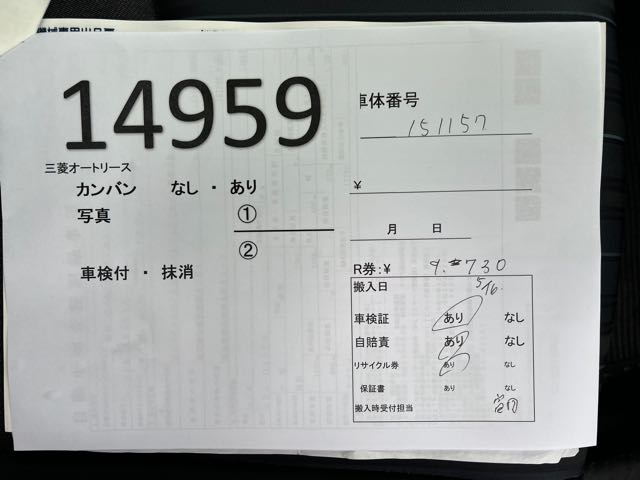 14959
三菱オートリース
カンバン なし ・ あり
写真 ①
②
車検付 ・ 抹消
車体番号
151157
¥
月 日
R券:¥ 9.730
搬入日 5/16.
車検証 あり なし
自賠責 あり なし
リサイクル券 あり なし
保証書 あり なし
搬入時受付担当